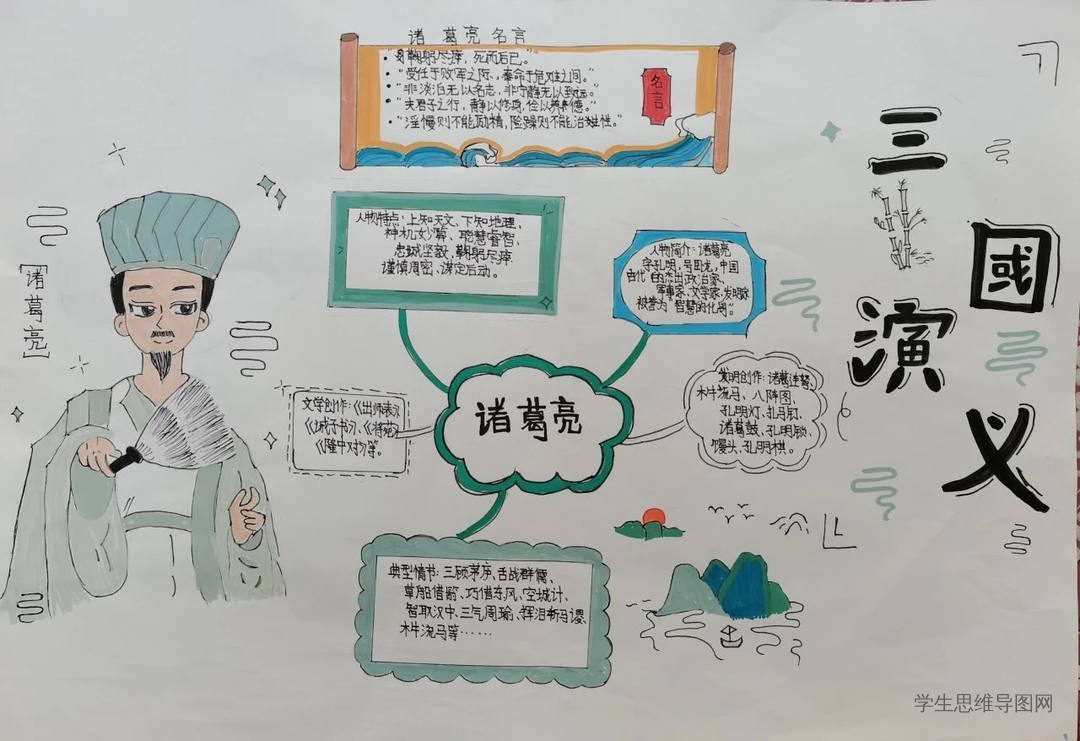 诸葛亮名言
"鞠躬尽瘁,死而后已。"
"受任于败军之际,奉命于危难之间。"
"非淡泊无以名志,非宁静无以致远。"
"夫君子之行,静以修身,俭以养德。"
"淫慢则不能励精,险躁则不能治性。"
名言
三国演义
人物特点:上知天文、下知地理、
神机妙算、聪慧睿智、
忠诚坚毅、鞠躬尽瘁
谨慎周密、谋定后动。
人物简介:诸葛亮
字孔明,号卧龙,中国
古代的杰出政治家、
军事家、文学家、发明家
被誉为"智慧的化身"。
【诸葛亮】
诸葛亮
文学创作:《出师表》
《诫子书》、《将苑》
《隆中对》等。
发明创作:诸葛连弩、
木牛流马、八阵图、
孔明灯、孔明锁、
馒头、孔明棋。
典型情节:三顾茅庐、舌战群儒、
草船借箭、巧借东风、空城计、
智取汉中、三气周瑜、挥泪斩马谡、
木牛流马等……
学生思维导图网